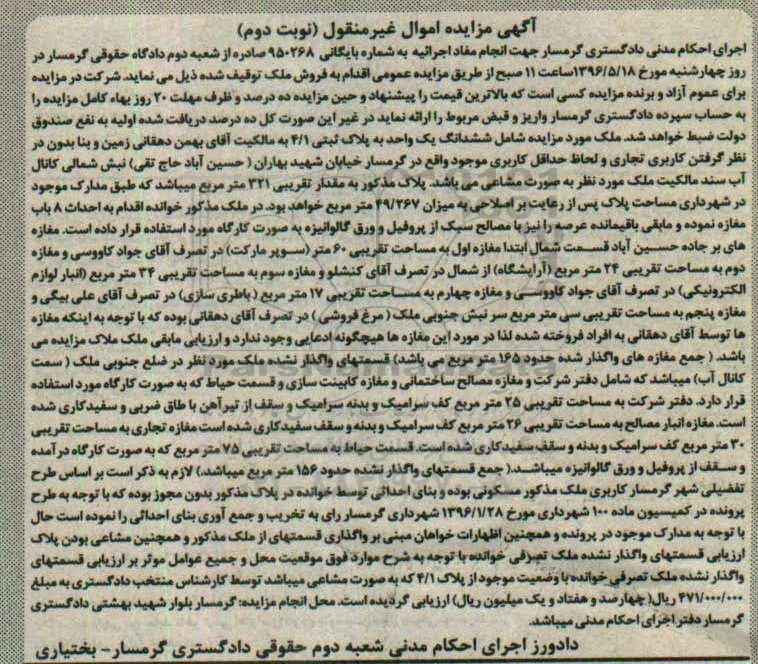 آگهی مزایده اموال غیرمنقول (نوبت دوم)
اجرای احکام مدنی دادگستری گرمسار جهت انجام مفاد اجرائیه به شماره بایگانی ۹۵۰۲۶۸ صادره از شعبه دوم دادگاه حقوقی گرمسار در
روز چهارشنبه مورخ ۱۳۹۶/۵/۱۸ساعت ۱۱ صبح از طریق مزایده عمومی اقدام به فروش ملک توقیف شده ذیل می نماید. شرکت در مزایده
برای عموم آزاد و برنده مزایده کسی است که بالاترین قیمت را پیشنهاد و حین مزایده ده درصد و ظرف مهلت ۲۰ روز بهاء کامل مزایده را
به حساب سپرده دادگستری گرمسار واریز و قبض مربوط را ارائه نماید در غیر این صورت کل ده درصد دریافت شده اولیه به نفع صندوق
دولت ضبط خواهد شد. ملک مورد مزایده شامل ششدانگ یک واحد به پلاک ثبتی ۴/۱ به مالکیت آقای بهمن دهقانی زمین و بنا بدون در
نظر گرفتن کاربری تجاری و لحاظ حداقل کاربری موجود واقع در گرمسار خیابان شهید بهاران ( حسین آباد حاج تقی) نبش شمالی کانال
آب سند مالکیت ملک مورد نظر به صورت مشاعی می باشد. پلاک مذکور به مقدار تقریبی ۳۲۱ متر مربع میباشد که طبق مدارک موجود
در شهرداری مساحت پلاک پس از رعایت بر اصلاحی به میزان ۴۹/۲۶۷ متر مربع خواهد بود. در ملک مذکور خوانده اقدام به احداث ۸ باب
مغازه نموده و مابقی باقیمانده عرصه را نیز با مصالح سبک از پروفیل و ورق گالوانیزه به صورت کارگاه مورد استفاده قرار داده است. مغازه
های بر جاده حسین آباد قسمت شمال ابتدا مغازه اول به مساحت تقریبی ۶۰ متر (سوپر مارکت) در تصرف آقای جواد کاووسی و مغازه
دوم به مساحت تقریبی ۲۴ متر مربع (آرایشگاه) از شمال در تصرف آقای کنشلو و مغازه سوم به مساحت تقریبی ۳۴ متر مربع (انبار لوازم
الکترونیکی) در تصرف آقای جواد کاووسی و مغازه چهارم به مساحت تقریبی ۱۷ متر مربع ( باطری سازی) در تصرف آقای علی بیگی و
مغازه پنجم به مساحت تقریبی سی متر مربع سر نبش جنوبی ملک ( مرغ فروشی ) در تصرف آقای دهقانی بوده که با توجه به اینکه مغازه
ها توسط آقای دهقانی به افراد فروخته شده لذا در مورد این مغازه ها هیچگونه ادعایی وجود ندارد و ارزیابی مابقی ملک ملاک مزایده می
باشد. ( جمع مغازه های واگذار شده حدود ۱۶۵ متر مربع می باشد) قسمتهای واگذار نشده ملک مورد نظر در ضلع جنوبی ملک ( سمت
کانال آب) میباشد که شامل دفتر شرکت و مغازه مصالح ساختمانی و مغازه کابینت سازی و قسمت حیاط که به صورت کارگاه مورد استفاده
قرار دارد. دفتر شرکت به مساحت تقریبی ۲۵ متر مربع کف سرامیک و بدنه سرامیک و سقف از تیرآهن با طاق ضربی و سفیدکاری شده
است. مغازه انبار مصالح به مساحت تقریبی ۲۶ متر مربع کف سرامیک و بدنه و سقف سفیدکاری شده است مغازه تجاری به مساحت تقریبی
۳۰ متر مربع کف سرامیک و بدنه و سقف سفیدکاری شده است. قسمت حیاط به مساحت تقریبی ۷۵ متر مربع که به صورت کارگاه در آمده
و سقف از پروفیل و ورق گالوانیزه میباشد.( جمع قسمتهای واگذار نشده حدود ۱۵۶ متر مربع میباشد.) لازم به ذکر است بر اساس طرح
تفضیلی شهر گرمسار کاربری ملک مذکور مسکونی بوده و بنای احداثی توسط خوانده در پلاک مذکور بدون مجوز بوده که با توجه به طرح
پرونده در کمیسیون ماده ۱۰۰ شهرداری مورخ ۱۳۹۶/۱/۲۸ شهرداری گرمسار رای به تخریب و جمع آوری بنای احداثی را نموده است حال
با توجه به مدارک موجود در پرونده و همچنین اظهارات خواهان مبنی بر واگذاری قسمتهای از ملک مذکور و همچنین مشاعی بودن پلاک
ارزیابی قسمتهای واگذار نشده ملک تصرفی خوانده با توجه به شرح موارد فوق موقعیت محل و جمیع عوامل موثر بر ارزیابی قسمتهای
واگذار نشده ملک تصرفی خوانده با وضعیت موجود از پلاک ۴/۱ که به صورت مشاعی میباشد توسط کارشناس منتخب دادگستری به مبلغ
۴۷۱/۰۰۰/۰۰۰ ریال( چهارصد و هفتاد و یک میلیون ریال) ارزیابی گردیده است. محل انجام مزایده: گرمسار بلوار شهید بهشتی دادگستری
گرمسار دفتر اجرای احکام مدنی میباشد.
دادورز اجرای احکام مدنی شعبه دوم حقوقی دادگستری گرمسار- بختیاری